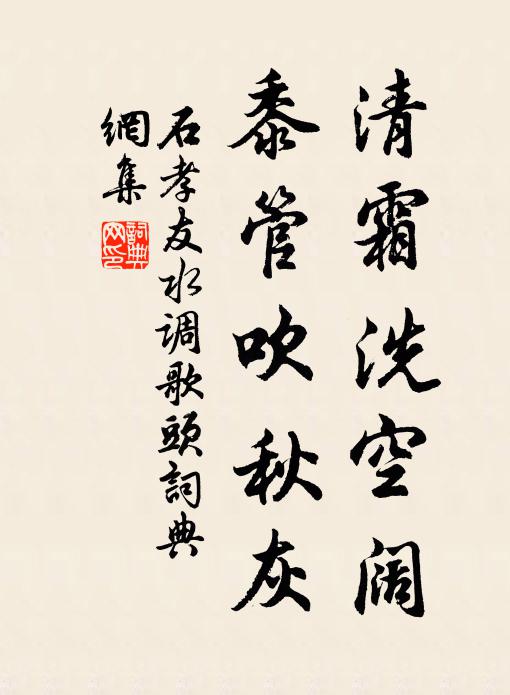 清霜洗空阔
黍管吹秋灰
石孝友水调歌頭詞典
網集
詞典
网印